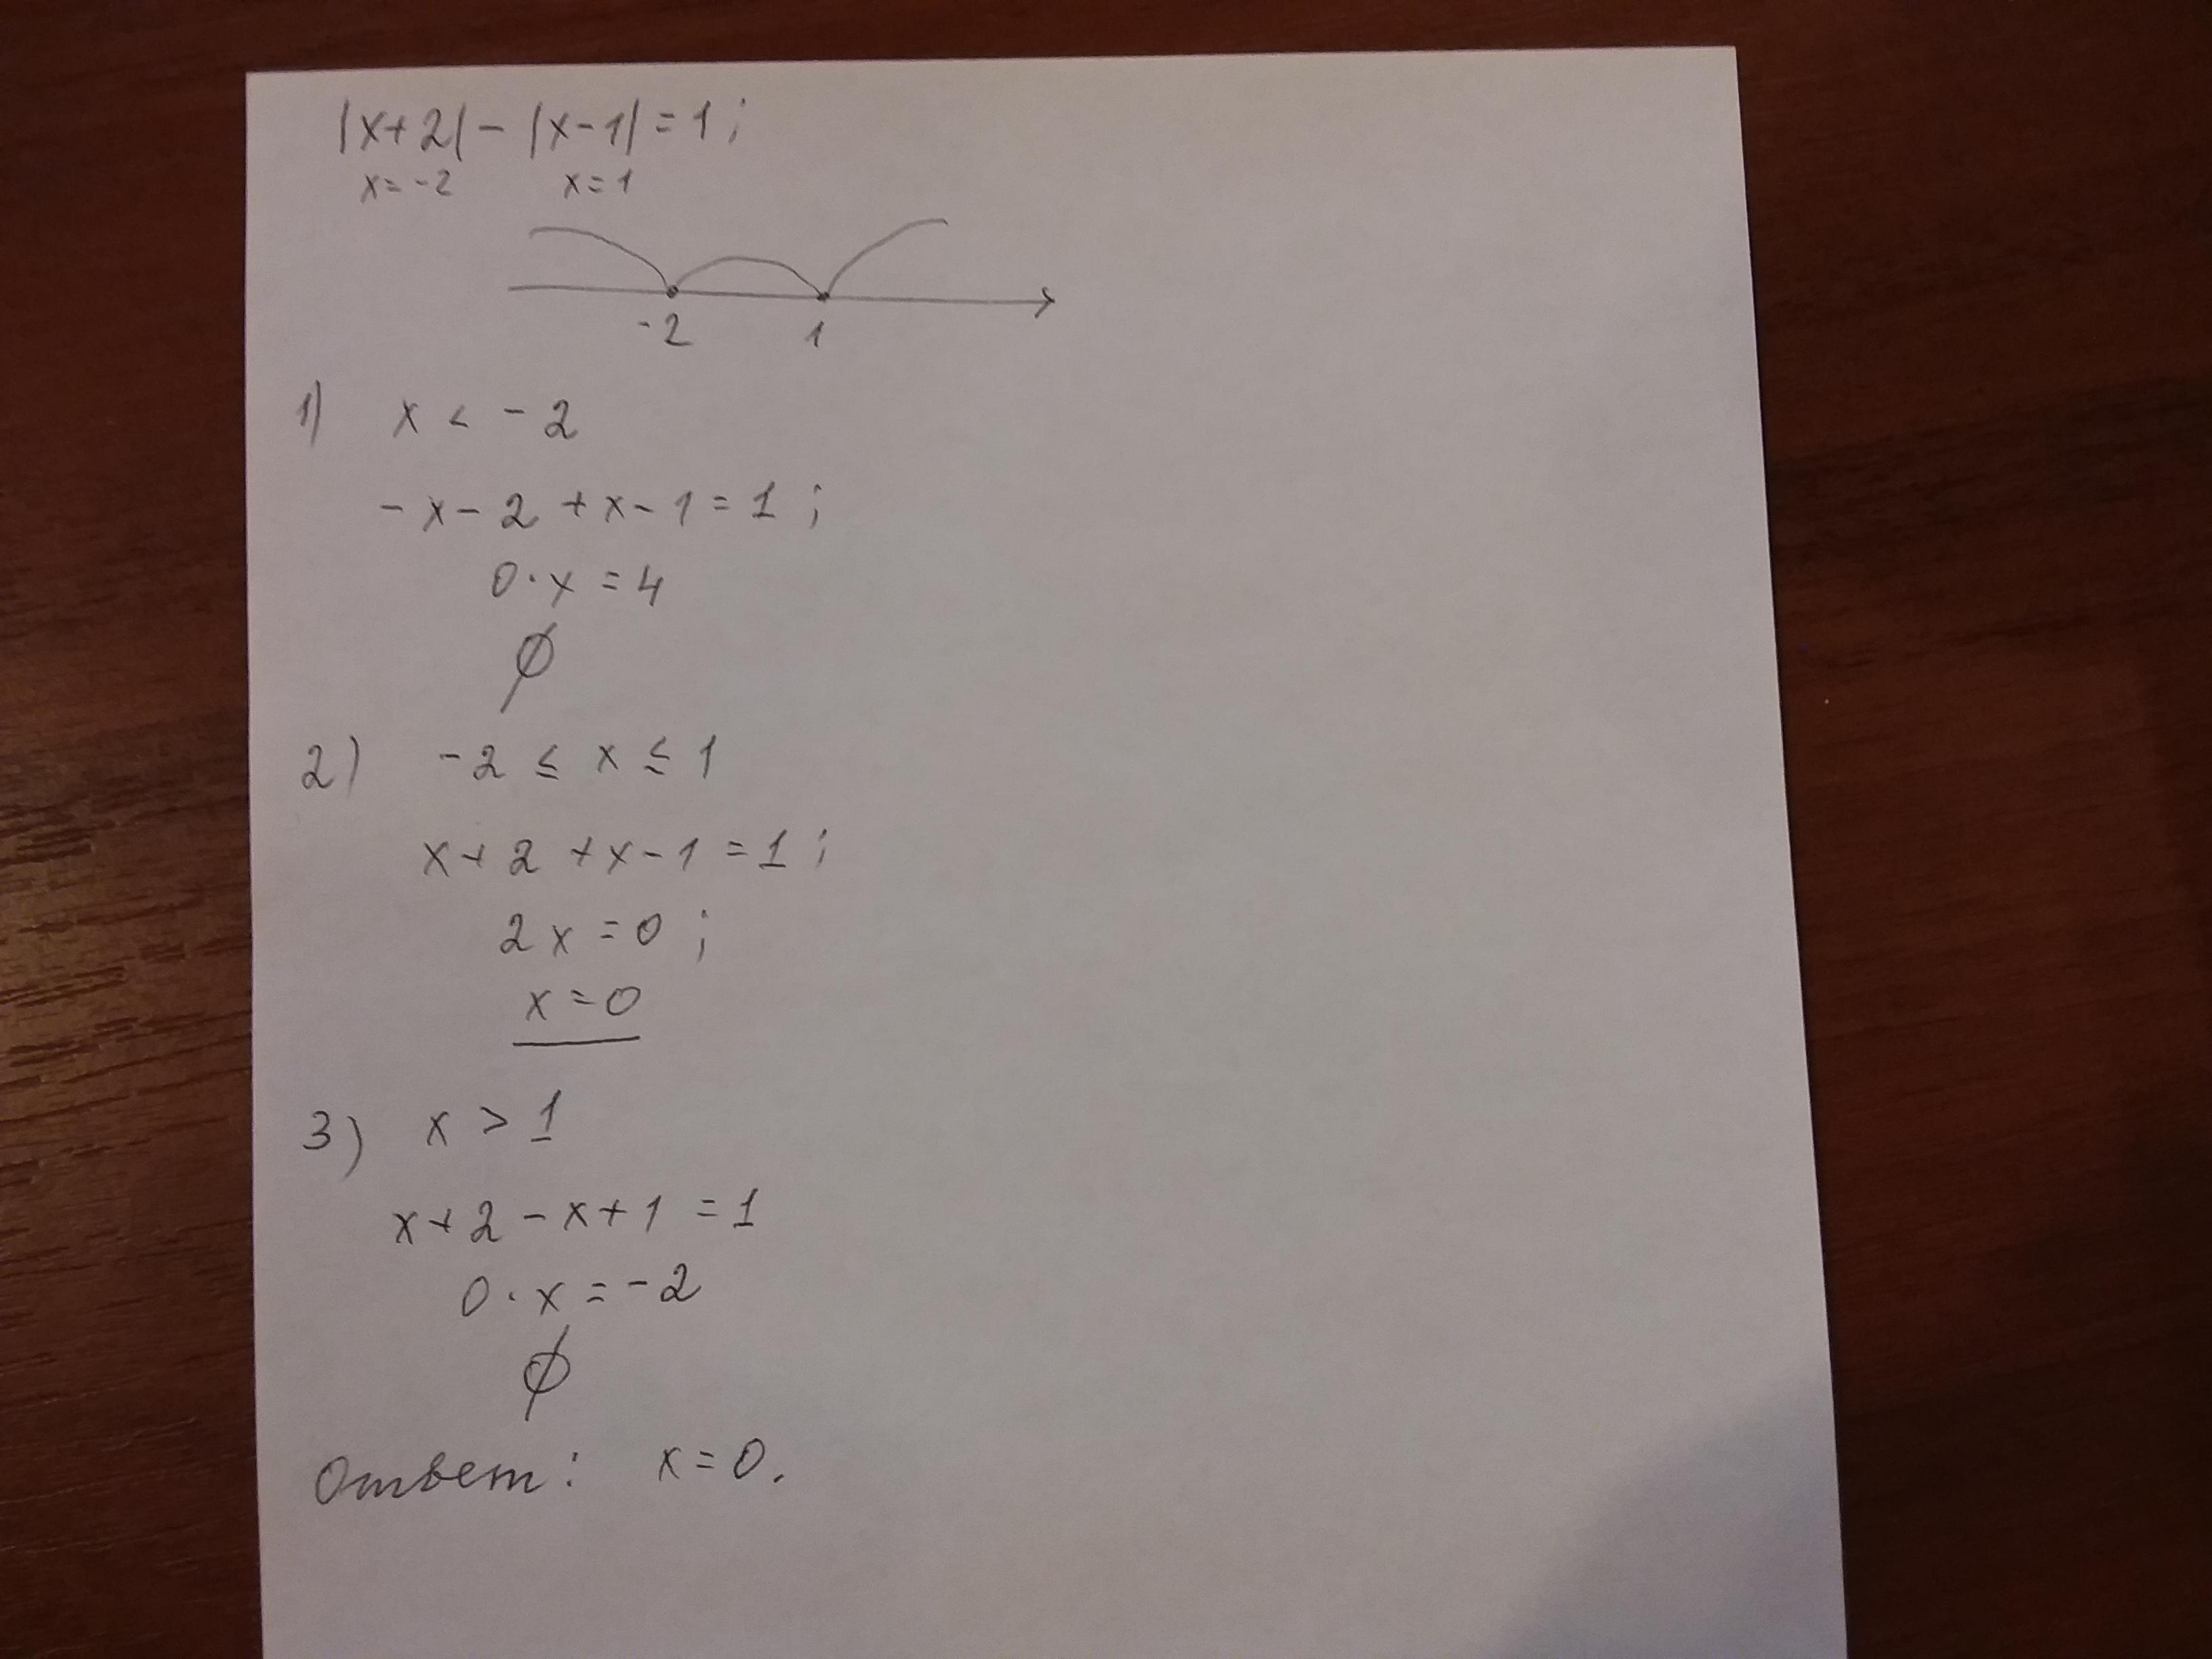 |x+2| - |x-1| = 1;
x=-2 x=1
-2 1
1) x < -2
-x-2+x-1=1;
0·x=4
∅
2) -2 ≤ x ≤ 1
x+2+x-1=1;
2x=0;
x=0
3) x > 1
x+2-x+1=1
0·x=-2
∅
Ответ: x=0.